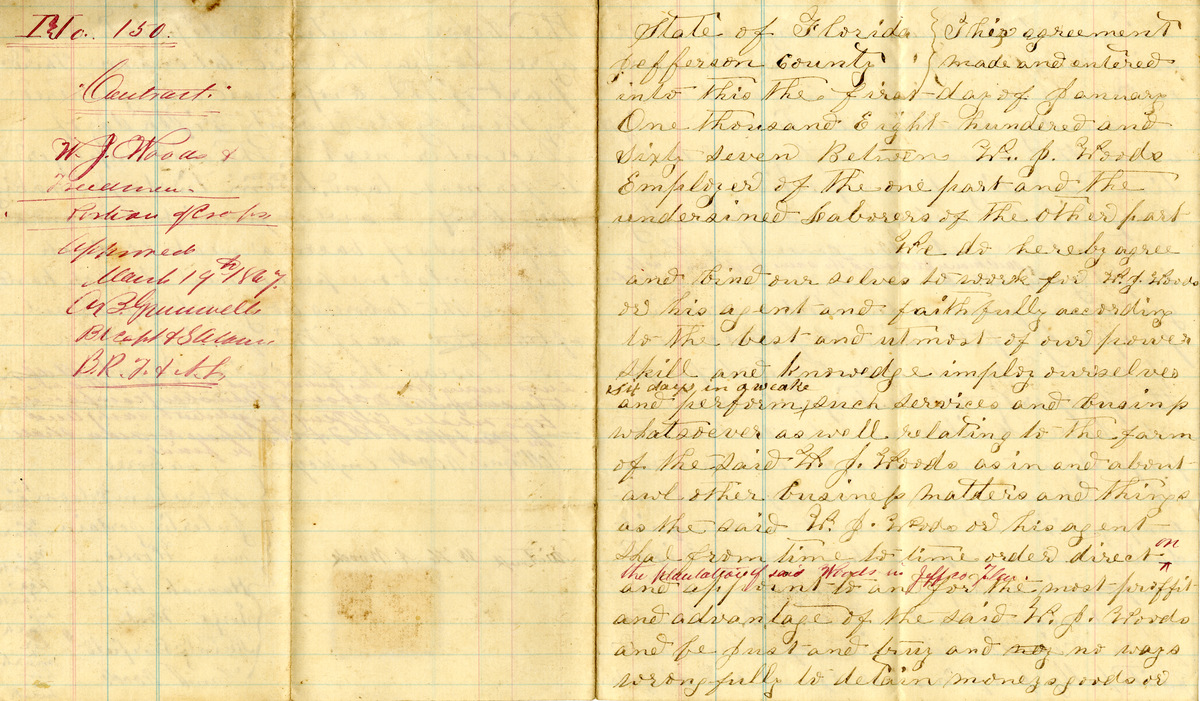 No. 150.
"Contract."
W. J. Woods &
Freedmen.
Portion of Crops
Approved
March 19th 1867.
Bt Capt &
B. R. F. & A. L.
State of Florida } This agreement
Jefferson County } made and entered
into this the first day of January
One thousand Eight hundred and
Sixty seven Between W. J. Woods
Employer of the one part and the
undersined Laborers of the other part
We do hereby agree
and bind our selves to work for W. J. Woods
or his agent and faithfully according
to the best and utmost of our power
skill and knowedge imploy ourselves
six days in a weake
and perform such services and business
whatsoever as well relating to the farm
of the said W. J. Woods as in and about
awl other business matters and things
as the said W. J. Woods or his agent
shal from time to time order direct on
the plantation of said Woods in Jeff co Fla
and appoint to and for the most proffit
and advantage of the said W. J. Woods
and be just and truy and no ways
wrongfully to detain moneys goods or